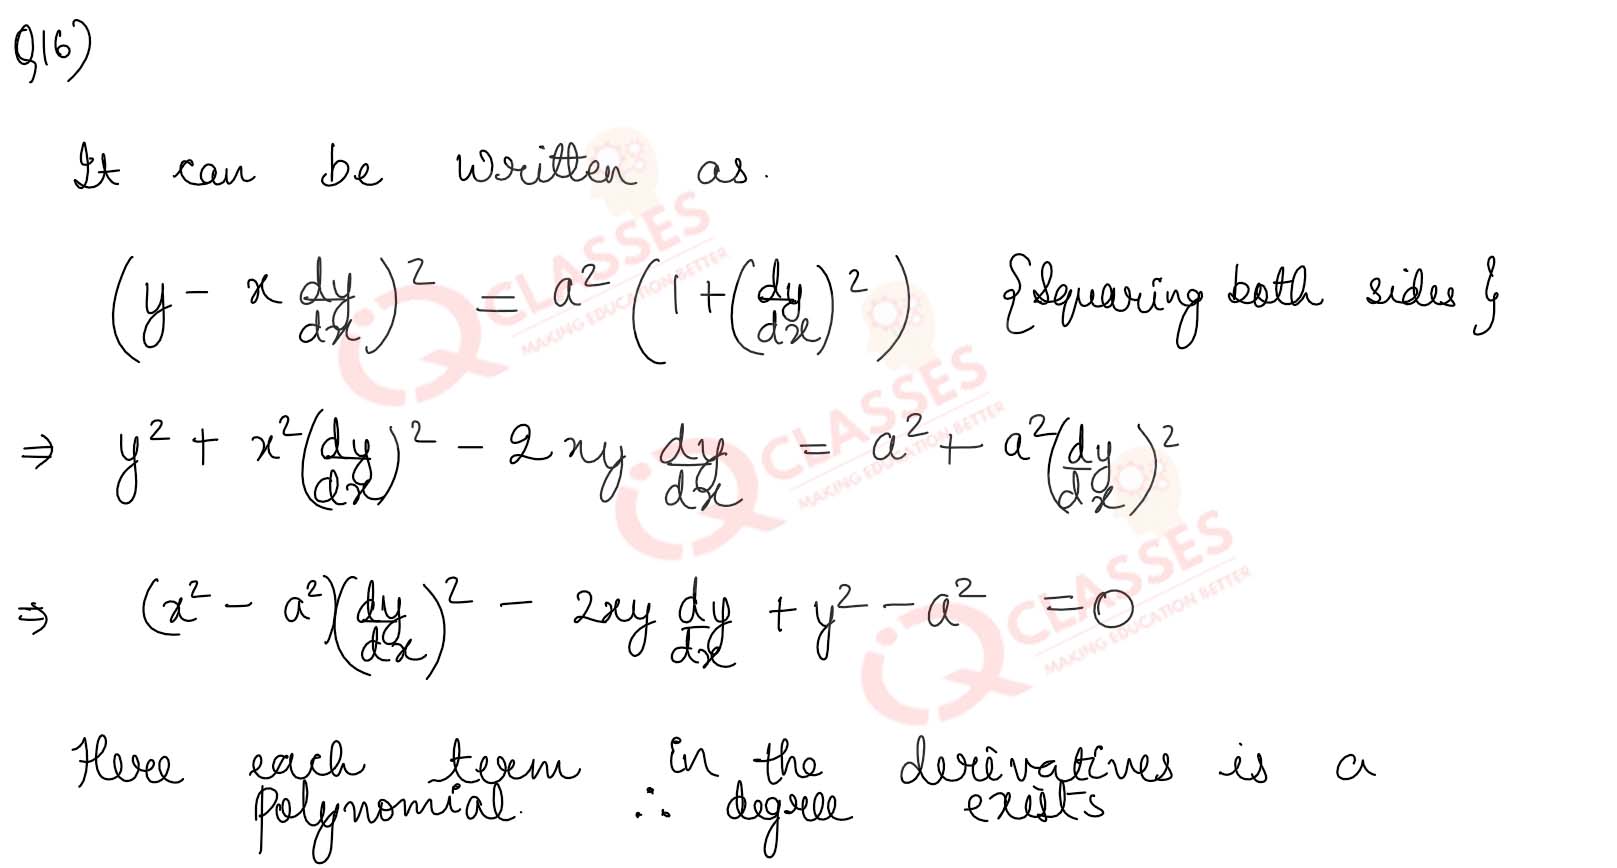 Q16)
It can be written as.
(y - x dy/dx)² = a² (1 + (dy/dx)²) {Squaring both sides}
⇒ y² + x²(dy/dx)² - 2xy dy/dx = a² + a²(dy/dx)²
⇒ (x² - a²)(dy/dx)² - 2xy dy/dx + y² - a² = 0
Here each term in the derivatives is a
polynomial. ∴ degree exists
CLASSES
MAKING EDUCATION BETTER
CLASSES
MAKING EDUCATION BETTER
CLASSES
MAKING EDUCATION BETTER